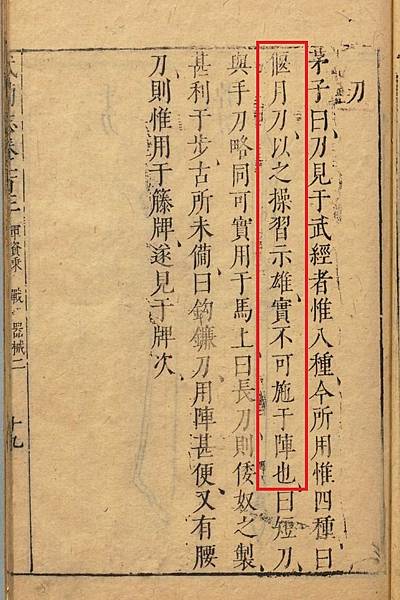 刀
茅子曰刀見于武經者惟八種今所用惟四種曰
偃月刀以之操習示雄實不可施于陣也曰短刀
與手刀略同可實用于馬上曰長刀則倭奴之製
甚利于步古所未備曰鈎鐮刀用陣甚便又有腰
刀則惟用于籐牌遂見于牌次
軍資乘 戰 器械二 十九